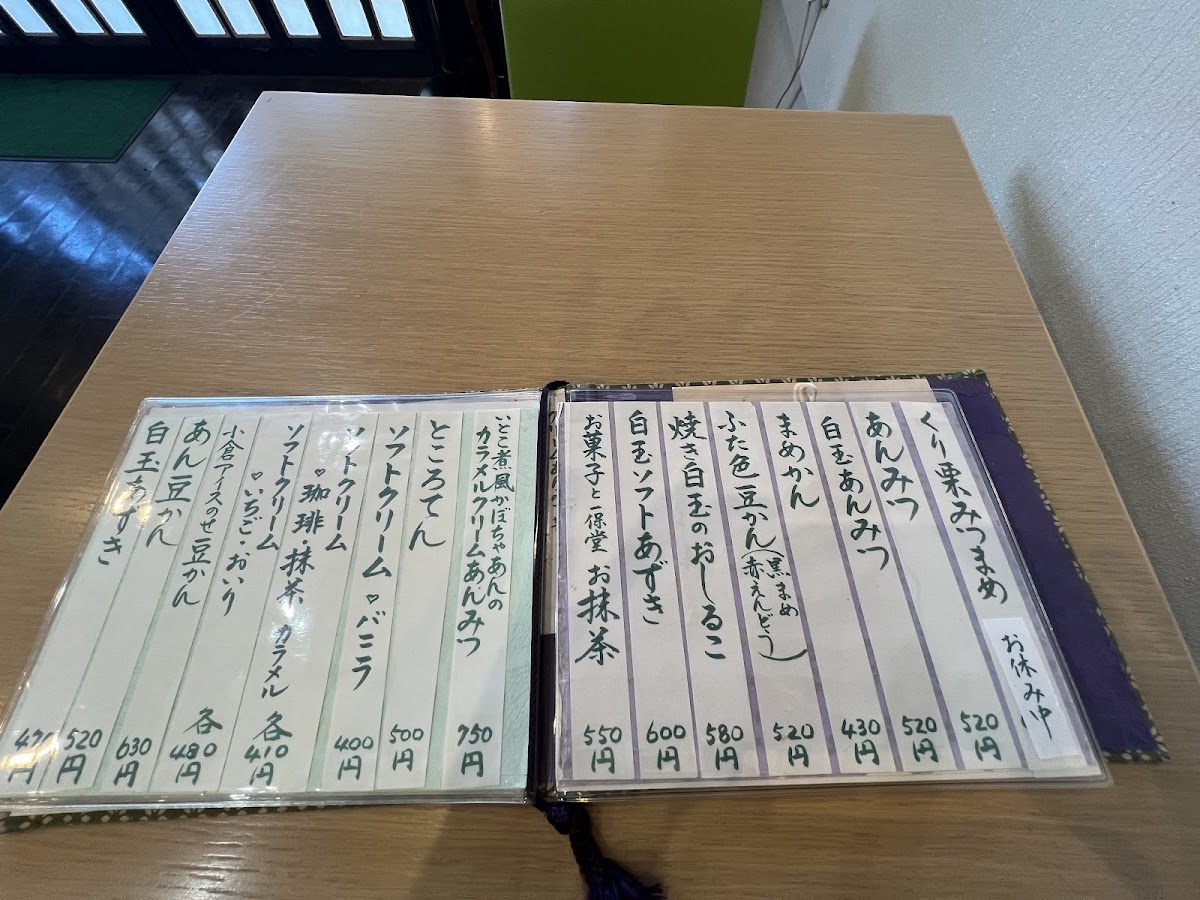 くり栗みつまめ
お休み中
あんみつ 520円
白玉あんみつ 520円
まめかん 430円
ふた色豆かん(黒まめ
赤えんどう) 520円
焼き白玉のおしるこ 580円
白玉ソフトあずき 600円
お菓子と一保堂 お抹茶 550円
いとこ煮風かぼちゃあんの
カラメルクリームあんみつ 750円
ところてん 500円
ソフトクリーム ♡バニラ 400円
ソフトクリーム
♡珈琲・抹茶 カラメル 各410円
ソフトクリーム
♡いちご・おいり 各480円
小倉アイスのせ 豆かん 630円
あん豆かん 520円
白玉あずき 470円